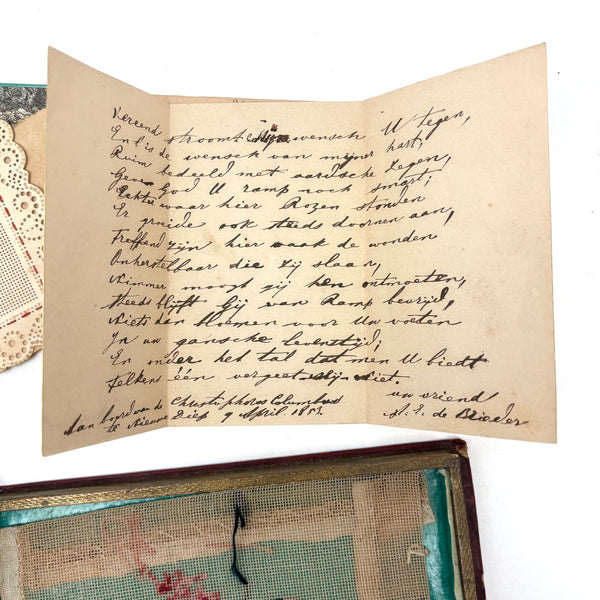 Vereend stroomt mijn wensch U tegen,
En 't is de wensch van mijner hart,
Ruim bedeeld met aardsche zegen,
Geve God U ramp noch smart;
Echter waar hier Rozen stonden
Er groeide ook steeds doornen aan,
Treffend zijn hier vaak de wonden
Onherstelbaar die zij slaan,
Nimmer moogt gij hen ontmoeten,
Steeds blijft Gij van Ramp bevrijd,
Niets dan bloemen voor Uw voeten
In uw gansche levenstijd;
En onder het tal dat men U biedt
telkens één vergeet mij niet.
uw vriend
Aan boord van de Christophorus Columbus
te Nieuwe Diep 9 April 1853.
de Brieder